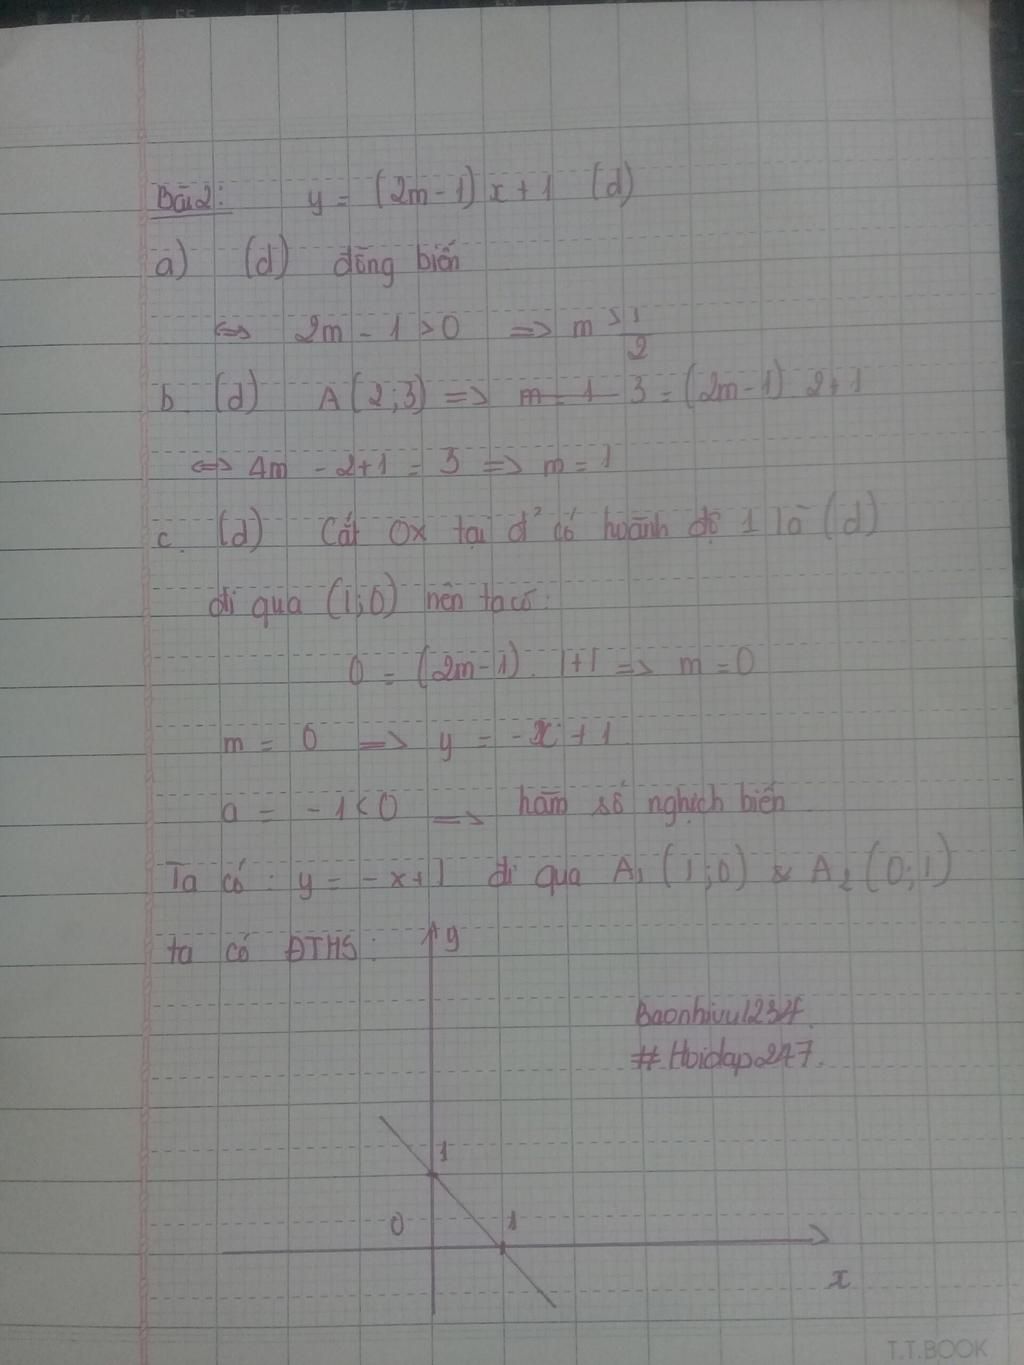 Bài 2: y = (2m-1)x+1 (d)
a) (d) đồng biến
<=> 2m - 1 > 0 => m > 1/2
b. (d) A(2;3) => m = 1 3 = (2m-1) 2+1
<=> 4m - 2+1 = 3 => m = 1
c. (d) Cắt Ox tại đ' có hoành độ 1 là (d)
đi qua (1;0) nên ta có:
0 = (2m-1). 1+1 => m = 0
m = 0 => y = -x + 1
a = -1 < 0 => hàm số nghịch biến
Ta có: y = -x+1 đi qua A1 (1;0) & A2 (0;1)
ta có ĐTHS: y
Baonhivu1234.
#Hoidap247.
1
0 1
x
T.T.BOOK